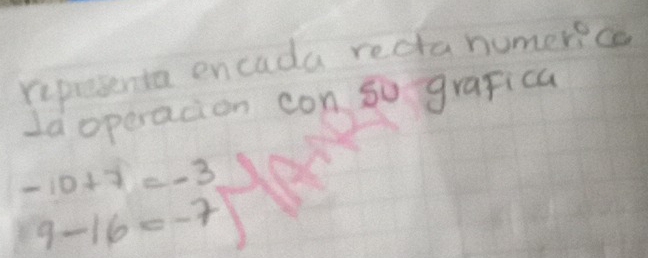 representa encada recta numerica
la operacion con su grafica
-10+7 = -3
9-16 = -7